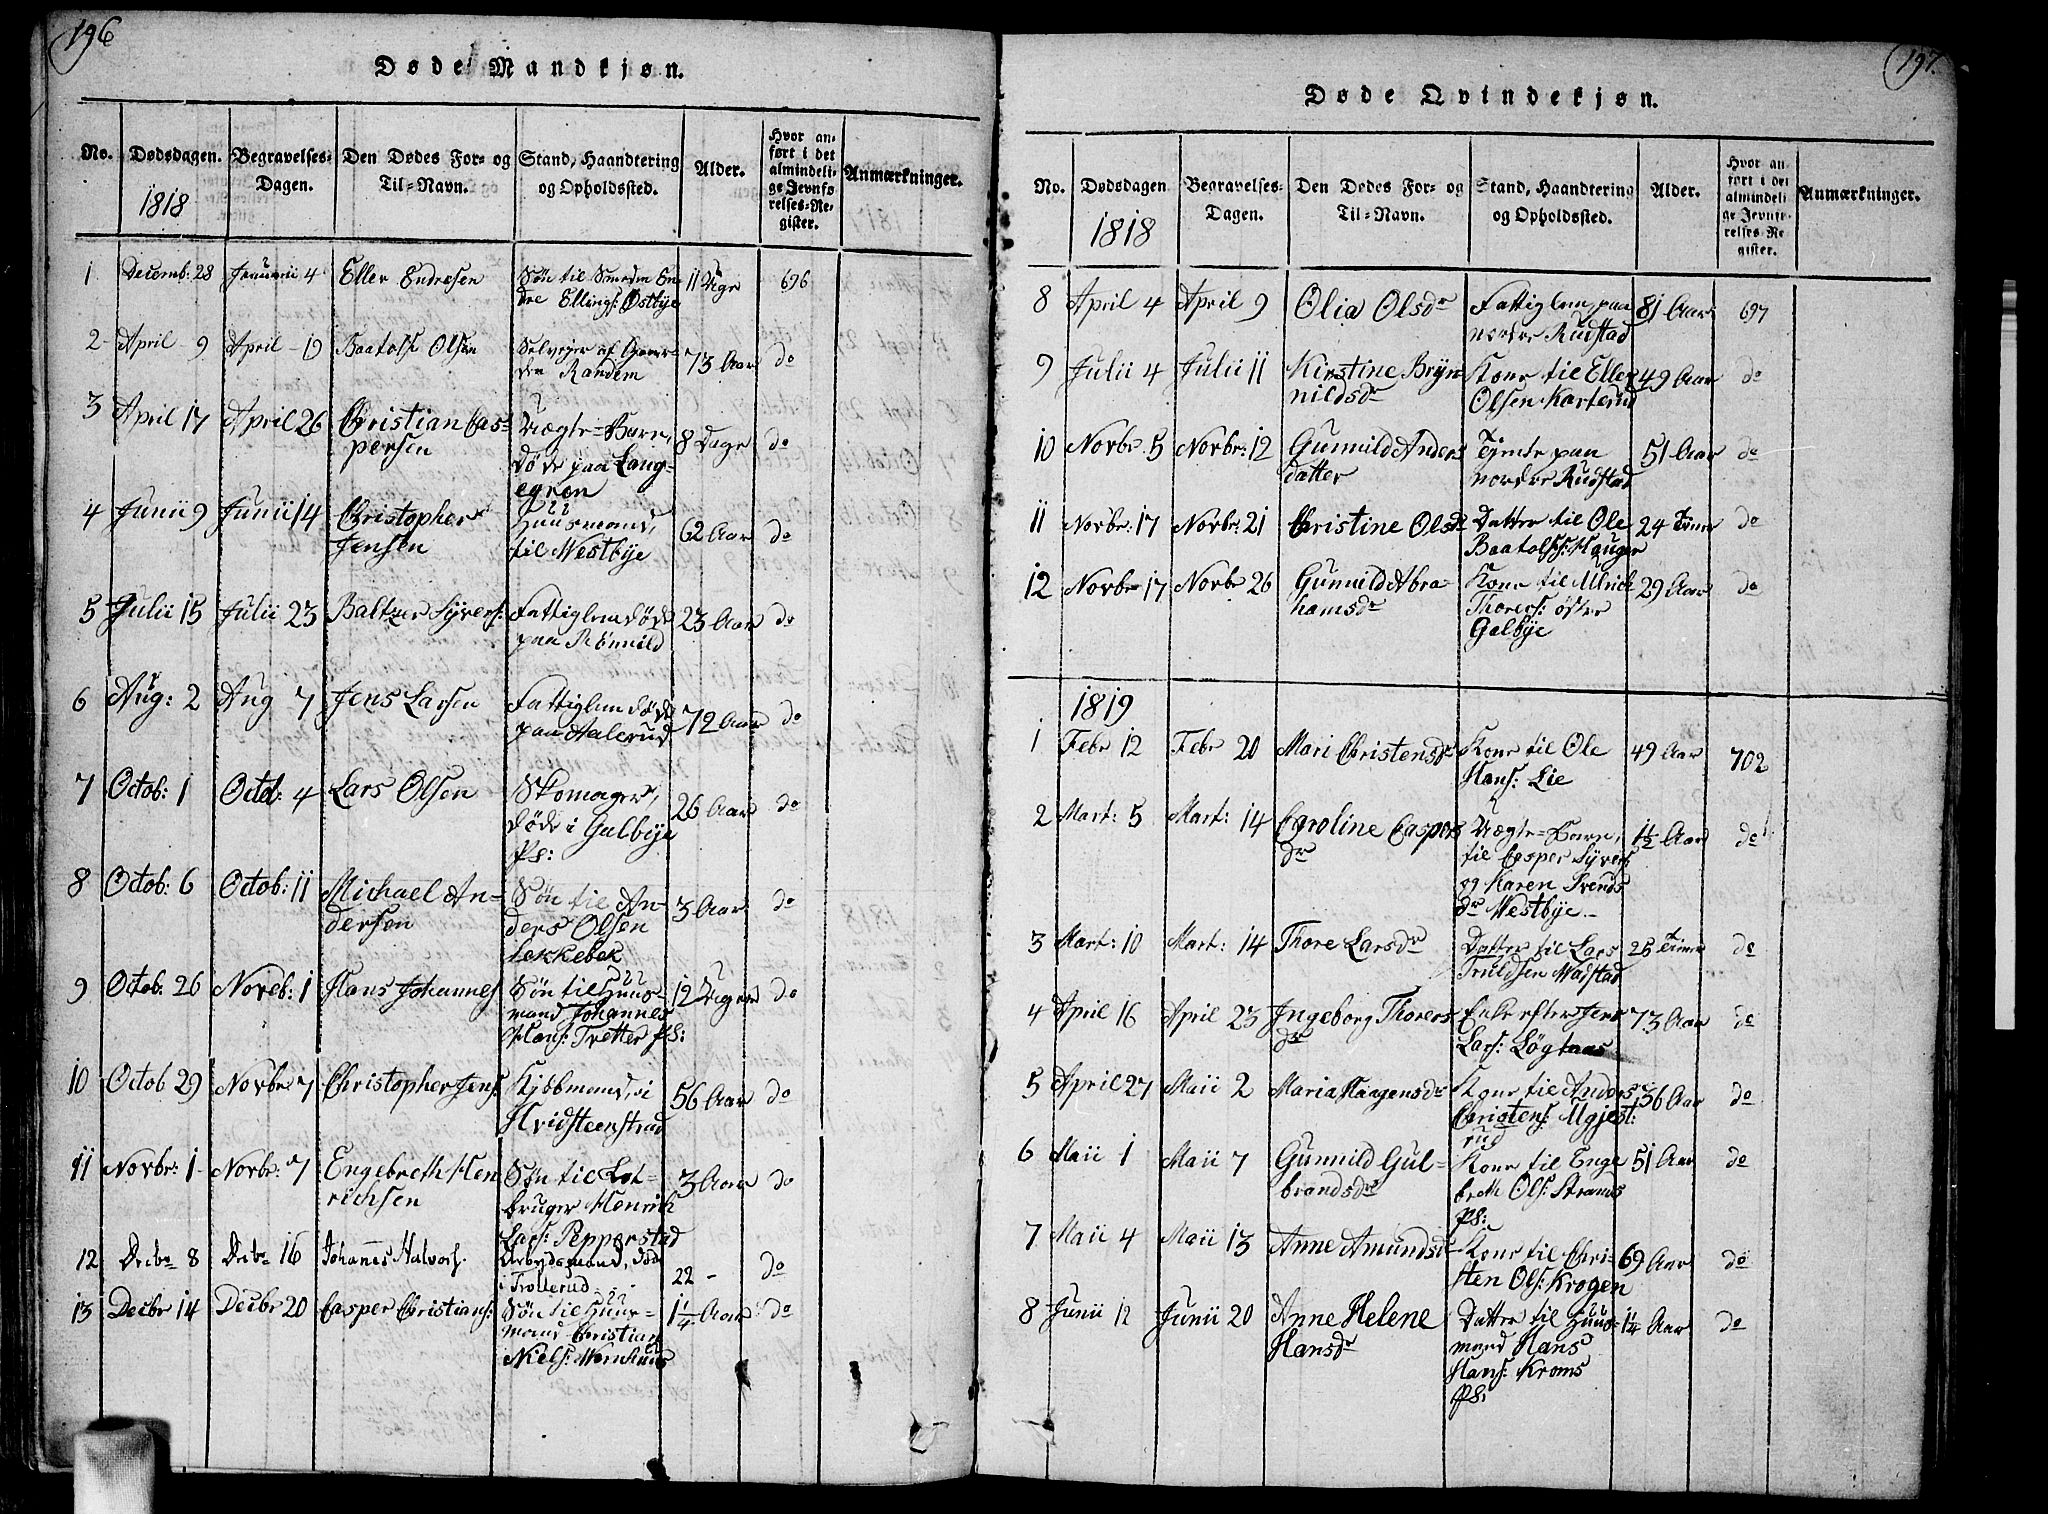 196
Døde Mandkjøn.
No. Dødsdagen. Begravelses-Dagen. Den Dødes For- og Til-Navn. Stand, Haandtering og Opholdssted. Alder. Hvor anført i det almindelige Jevnførelses-Register. Anmærkninger.
1818
1 Decemb: 28 Januarii 4 Eller Endresen Søn til En-
dre Ellings: Østbye 11 Uger 696
2 April 9 April 19 Baatolf Olsen Selvejer af
Randem 73 Aar do
3 April 17 April 26 Christian Cas-
persen Uægte-Barn,
døde paa Lang-
egron 8 Dage do
4 Junii 9 Junii 14 Christopher
Jensen Huusmand,
til Westbye 62 Aar do
5 Julii 15 Julii 23 Baltzer Syvers: Fattiglem døde
paa Rønnild 23 Aar do
6 Aug: 2 Aug 7 Jens Larsen Fattiglem døde
paa Halerud 72 Aar do
7 Octob: 1 Octob: 4 Lars Olsen Skomager,
døde i Galbye
Ps: 26 Aar do
8 Octob: 6 Octob: 11 Michael An-
dersen Søn til An-
ders Olsen
Lekkebek 3 Aar do
9 Octob: 26 Noveb: 1 Hans Johannes Søn til Huus-
mand Johannes
Hans: Tretter Ps: 12 Uger do
10 Octob 29 Novbr 7 Christopher Jens: Kjøbmand, i
Hvidsteenstrad 56 Aar do
11 Novbr: 1 Novbr: 7 Engebreth Hen
richsen Søn til Leh-
bruger Henrich
Lars: Pepperstad 3 Aar do
12 Decbr 8 Decbr 16 Johannes Halvors. Arbejdsmand, død
i Trollerud 22 - do
13 Decbr 14 Decbr 20 Casper Christians: Søn til Huus-
mand Christian
Niels: Wernhuus 1 1/4 Aar do
197.
Døde Qvindekjøn.
No. Dødsdagen Begravelses-Dagen. Den Dødes For- og Til-Navn. Stand, Haandtering og Opholdssted. Alder. Hvor anført i det almindelige Jevnførelses-Register. Anmærkninger.
1818
8 April 4 April 9 Olia Olsdr Fattiglem paa
nordre Rudstad 81 Aar 697
9 Julii 4 Julii 11 Kirstine Bryn
nildsdr Kone til Eller
Olsen Karterud 49 Aar do
10 Novbr 5 Novbr: 12 Gunnild Anders
datter Tjente paa
nordre Rudstad 51 Aar do
11 Novbr: 17 Novbr: 21 Christine Olsdr Datter til Ole
Baatolfs: Hauger 24 Timer do
12 Novbr 17 Novbr 26 Gunnild Abra
hamsdr Kone til Ulrich
Thorers: østre
Galbye 29 Aar do
1819
1 Febr 12 Febr 20 Mari Christensdr Kone til Ole
Hans: Lie 49 Aar 702
2 Mart: 5 Mart: 14 Caroline Caspers
dr Uægte-Barn,
til Casper Syvers
og Karen Svends
dr Westbye 1 1/2 Aar do
3 Mart: 10 Mart: 14 Thore Larsdr Datter til Lars
Truldsen Wadstad 25 Timer do
4 April 16 April 23 Ingeborg Thorers
dr Enke efter Jens
Lars: Løgtnes 73 Aar do
5 April 27 Maii 2 Maria Haagensdr Kone til Anders
Christens: Mgjest:
rud 56 Aar do
6 Maii 1 Maii 7 Gunnild Gul-
brandsdr Kone til Enge
breth Ols: Strands
Ps: 51 Aar do
7 Maii 4 Maii 13 Anne Amundsdr Kone til Chri-
sten Ols: Krogen 69 Aar do
8 Junii 12 Junii 20 Anne Helene
Hansdr Datter til Huus-
mand Hans
Hans: Kroms
Ps: 1 1/4 Aar do